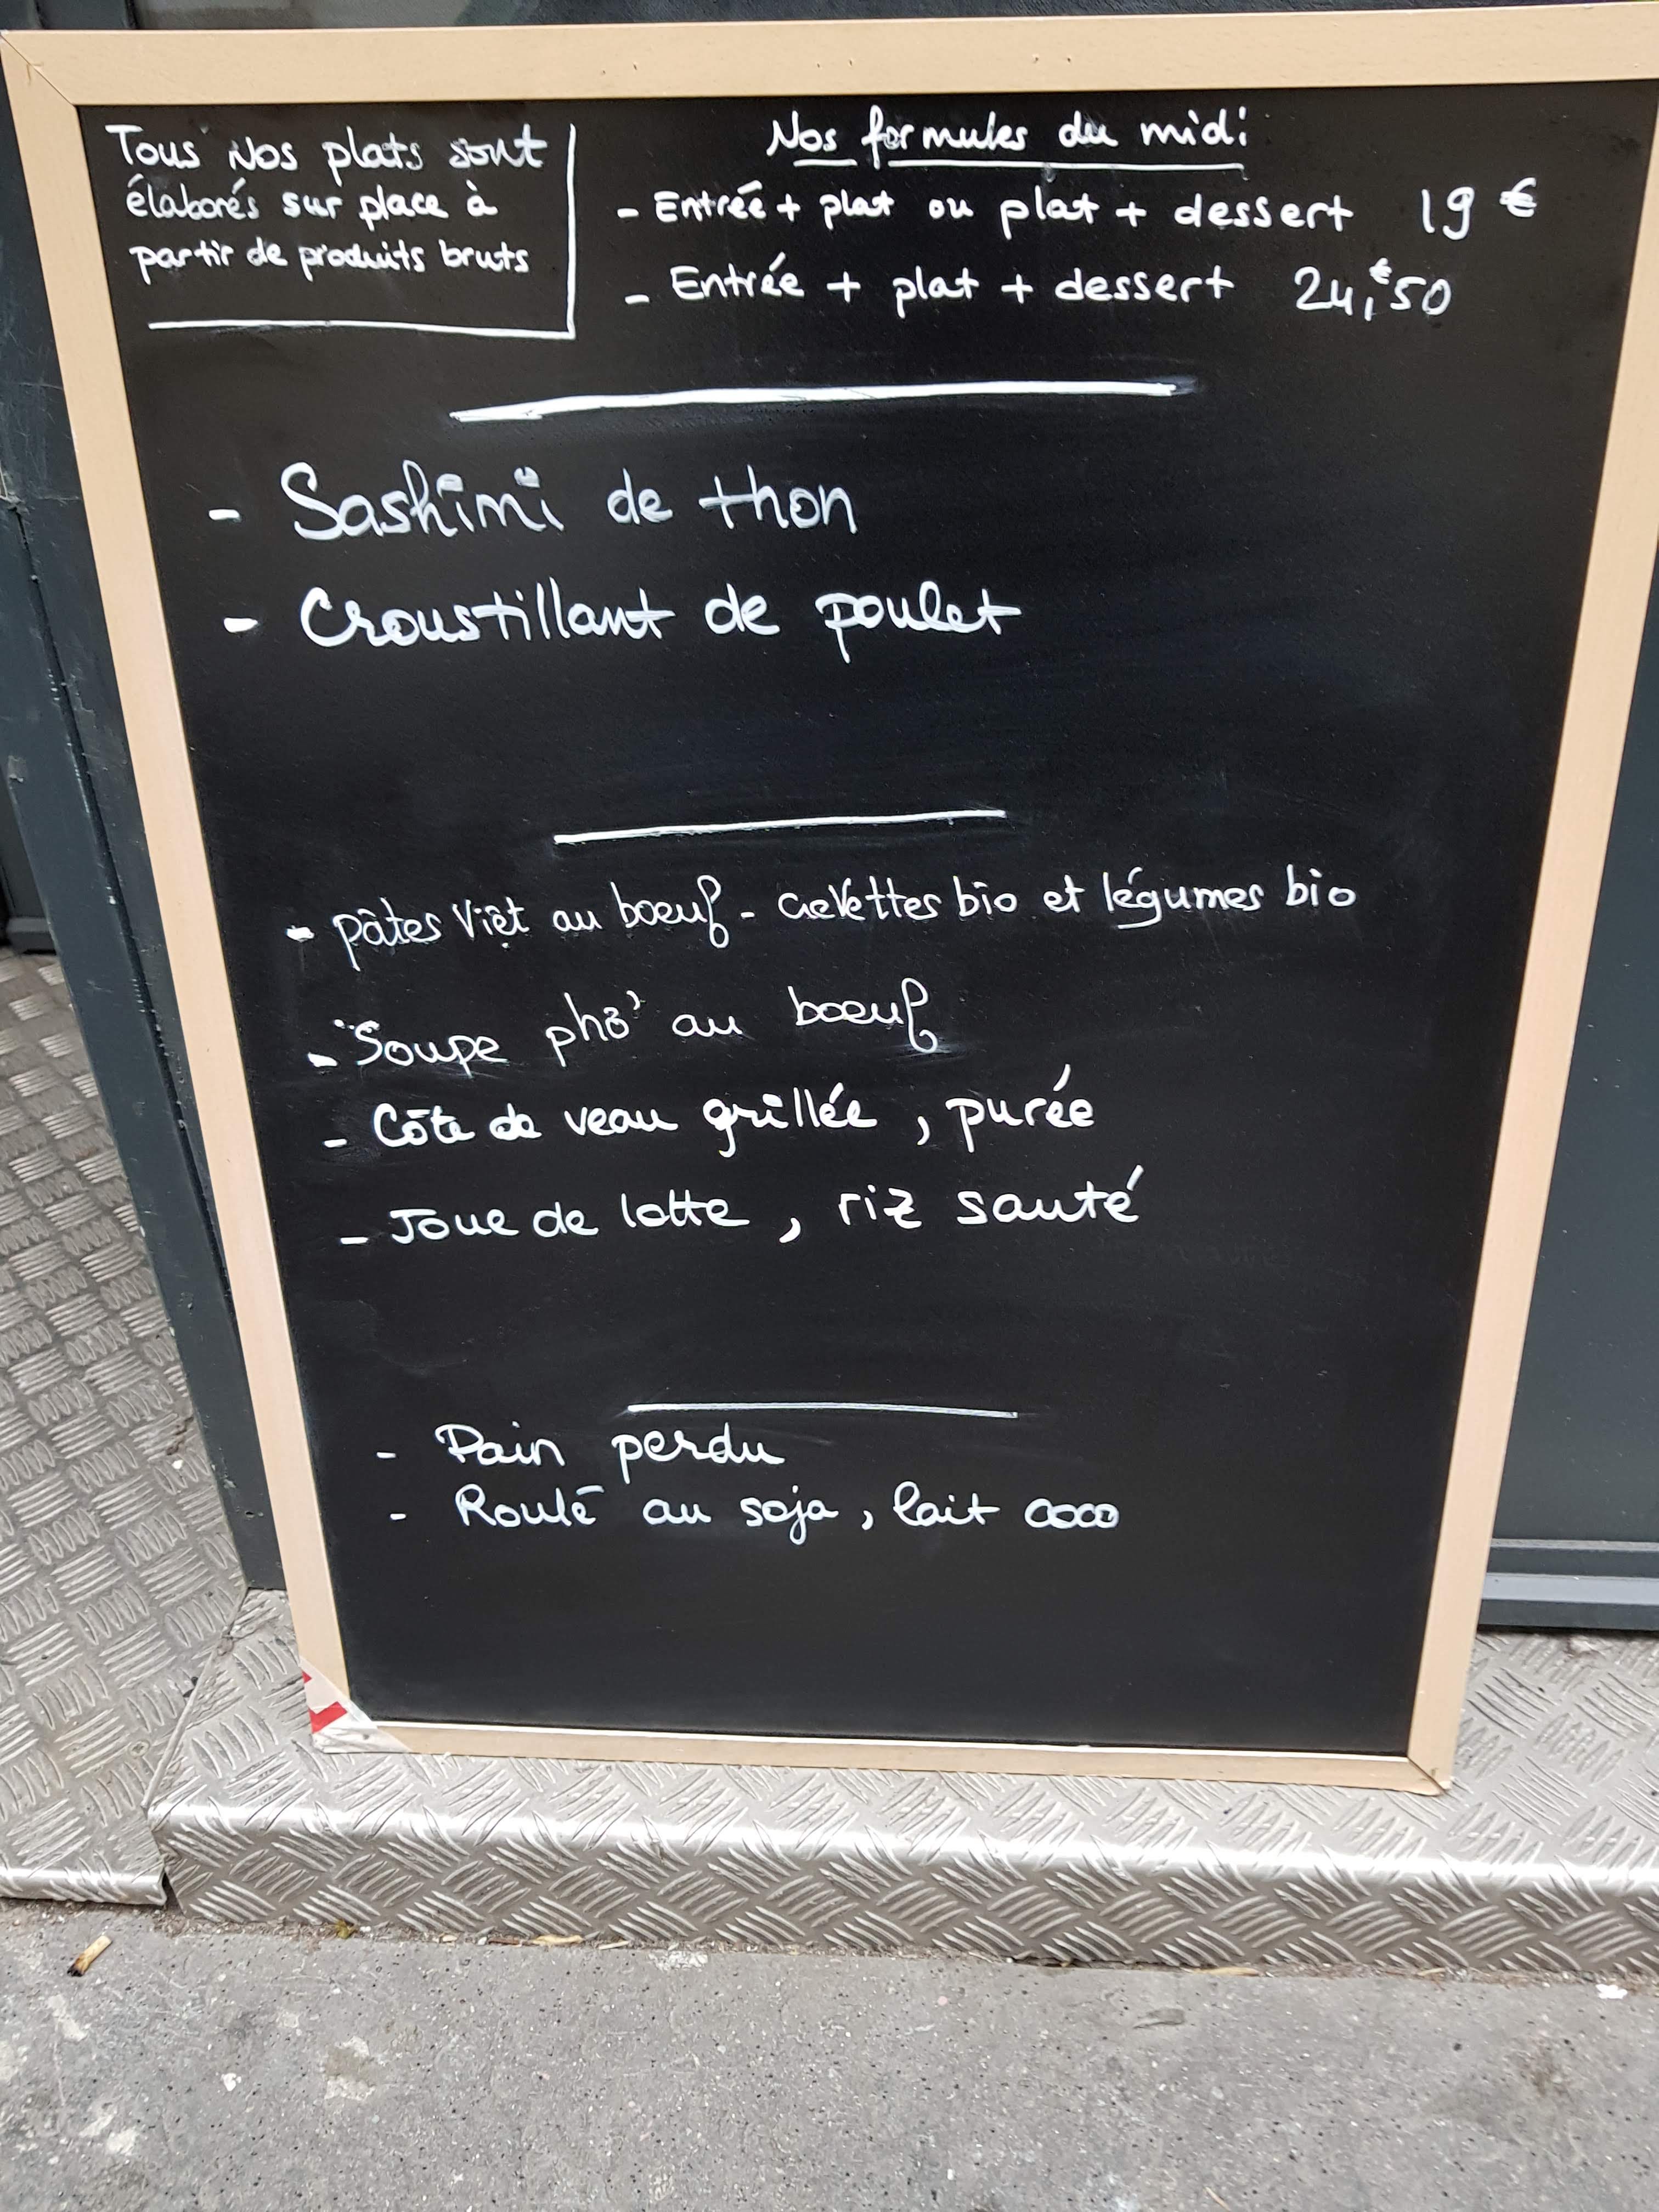 Tous Nos plats sont
élaborés sur place à
partir de produits bruts
Nos formules du midi
- Entrée + plat ou plat + dessert 19 €
- Entrée + plat + dessert 24,€50
- Sashimi de thon
- Croustillant de poulet
- pâtes Việt au bœuf - crevettes bio et légumes bio
- Soupe phở au bœuf
- Côte de veau grillée, purée
- Joue de lotte, riz sauté
- Pain perdu
- Roulé au soja, lait coco